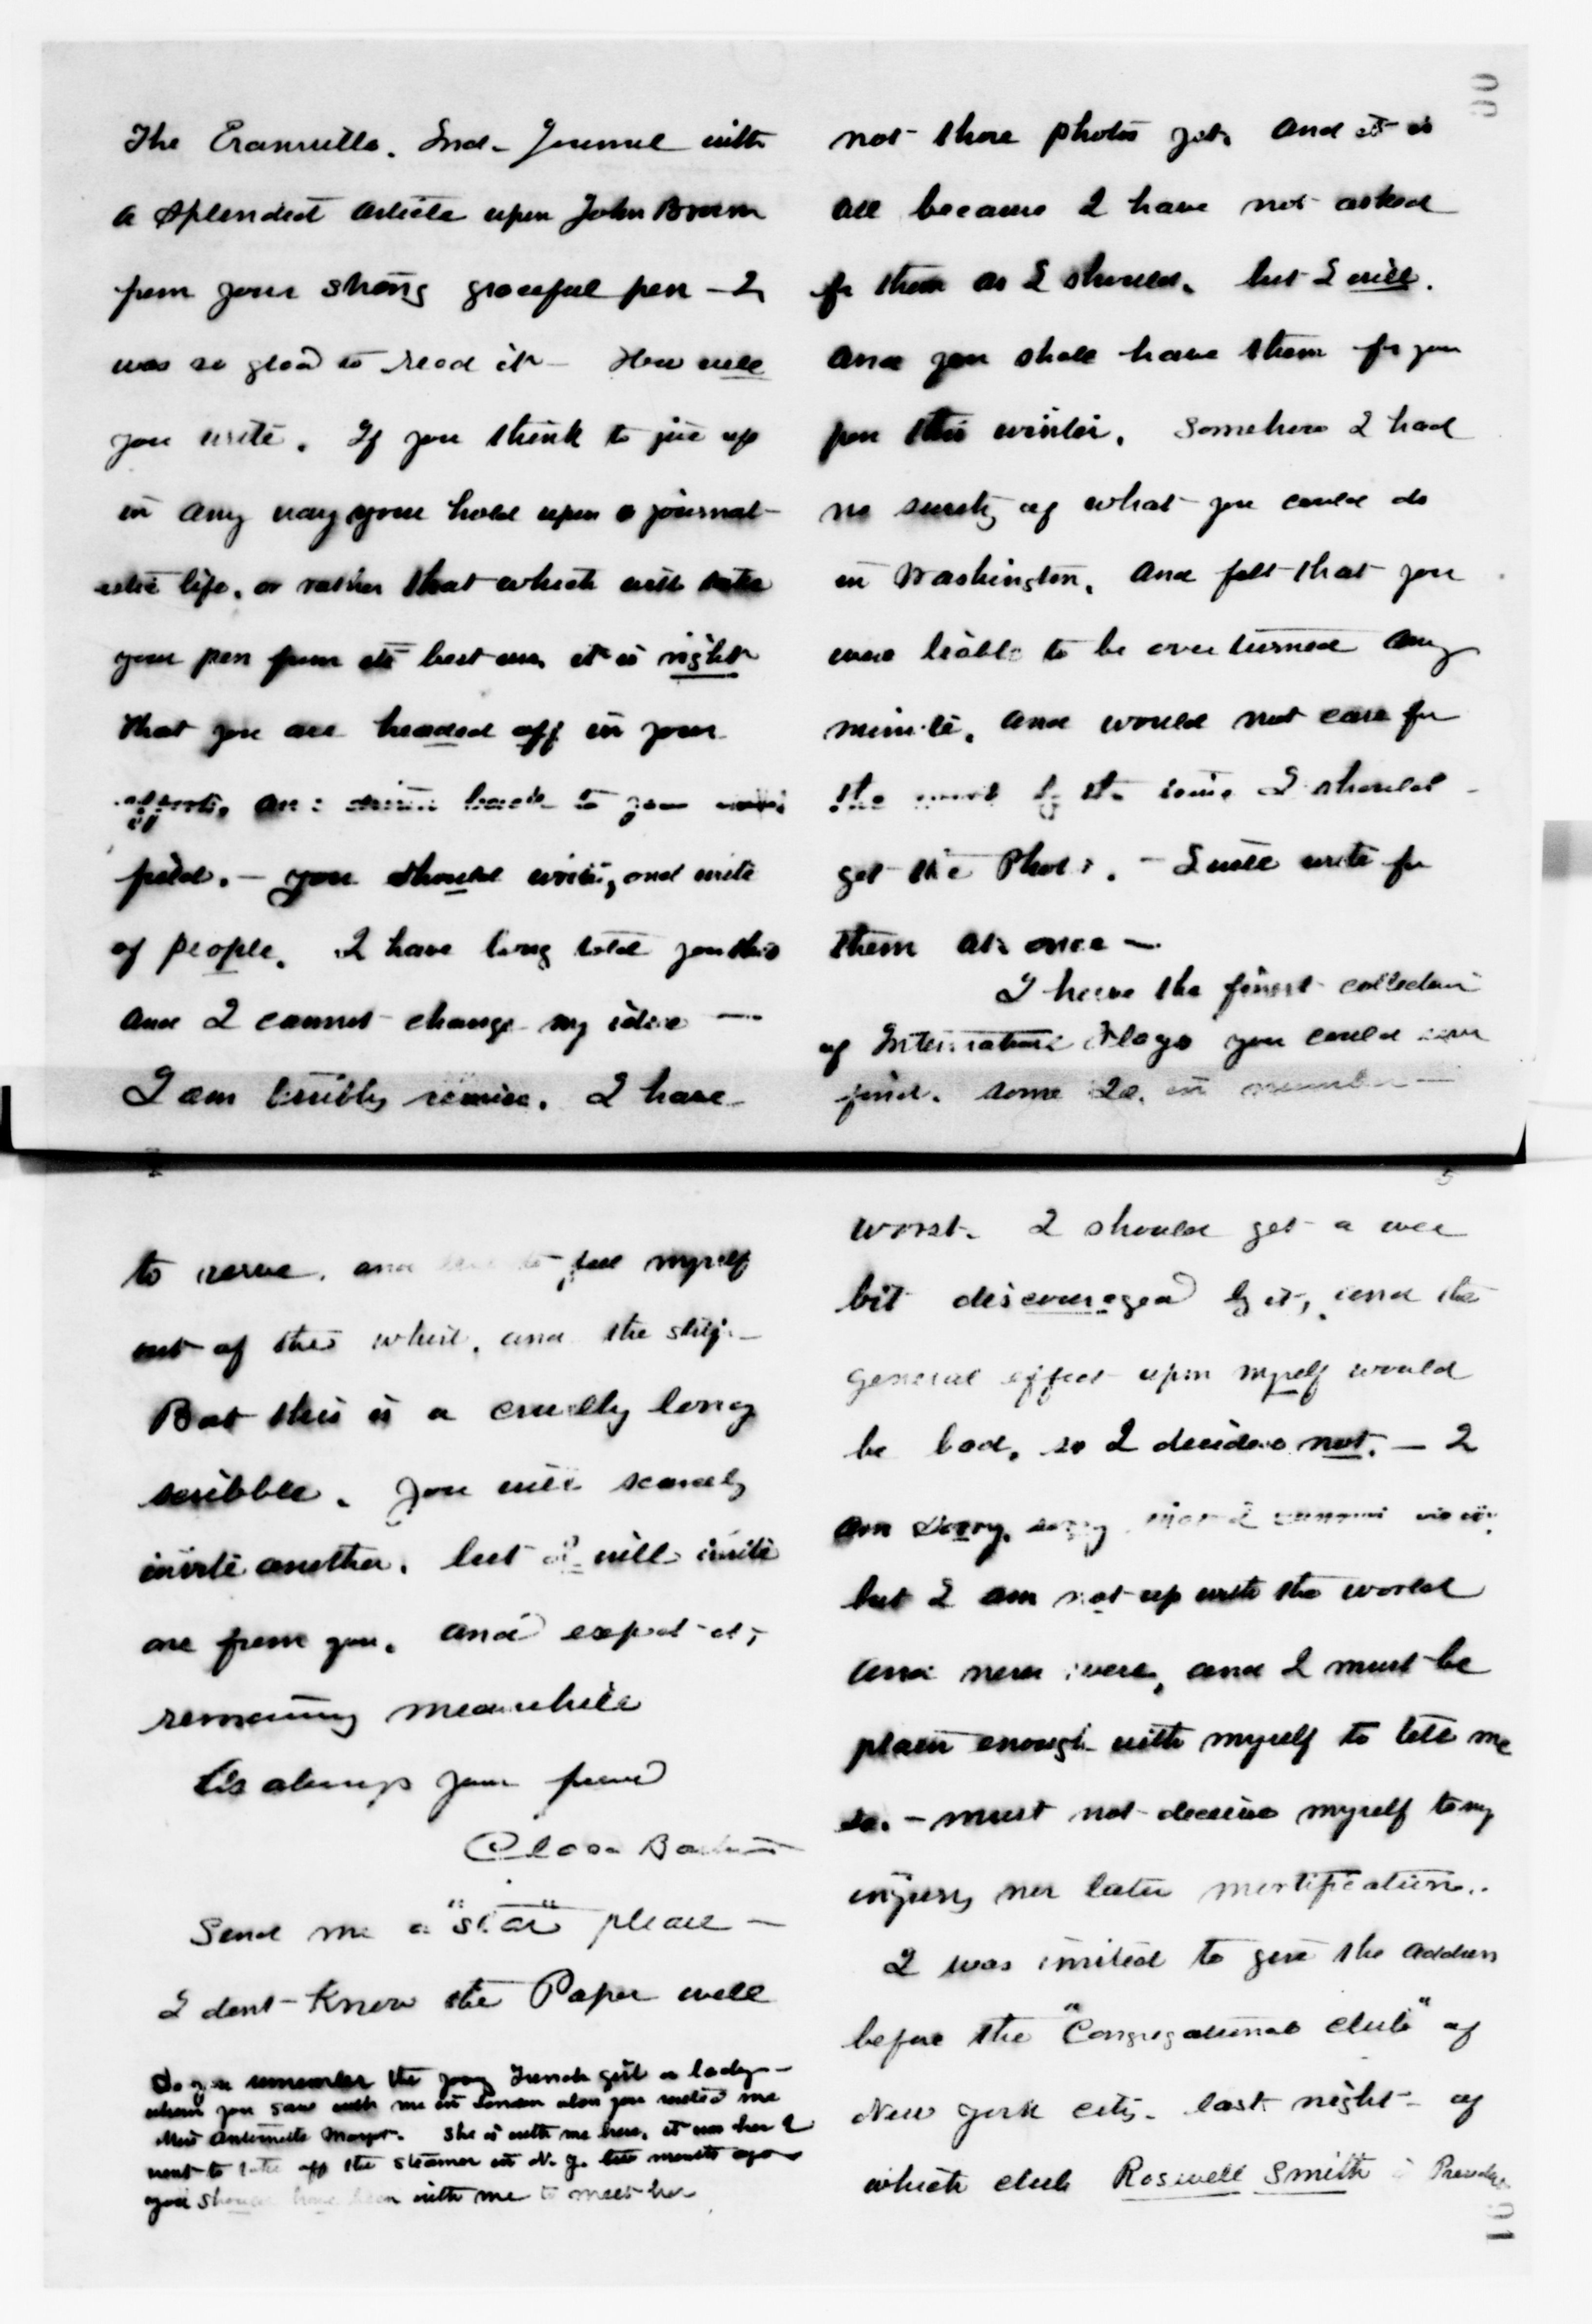 The Evansville. Ind- Journal with
a splendid article upon John Brown
from your strong graceful pen - I
was so glad to read it - How well
you write. If you think to give up
in any way your hold upon a journal-
istic life, or rather that which will take
your pen from its best use, it is right
that you are headed off in your
efforts, and driven back to your
field. - you should write, and write
of people. I have long told you this
and I cannot change my idea -
I am terribly remiss. I have
not those photos yet, and it is
all because I have not asked
for them as I should. but I will.
and you shall have them for your
pen this winter. Somehow I had
no surety of what you could do
in Washington, and felt that you
were liable to be overturned any
minute, and would not care for
the by the time I should
get the Photos. - I will write for
them at once -
I have the finest collection
of International Flags you could ever
find. some 20. in number -
to serve, and to feel myself
out of the whirl, and the strife -
But this is a cruelly long
scribble. You will scarcely
invite another, but I will invite
one from you. and expect it,
remaining meanwhile
As always your friend
Clara Barton
Send me a "Star" please -
I dont Know the Paper well
Do you remember the young French girl or lady -
whom you saw with me in London when you visited me
Miss Antoinette Margot. She is with me here, it was her I
went to take off the steamer in N.Y. two months ago
you should have been with me to meet her
worst. I should get a wee
bit discouraged by it, and the
general effect upon myself would
be bad, so I decided not. - I
am sorry, sorry that I cannot
but I am not up with the world
and never were, and I must be
plain enough with myself to tell me
so. - must not deceive myself to my
injury nor later mortification.
I was invited to give the address
before the "Congregational club" of
New York city. last night - of
which club Roswell Smith is